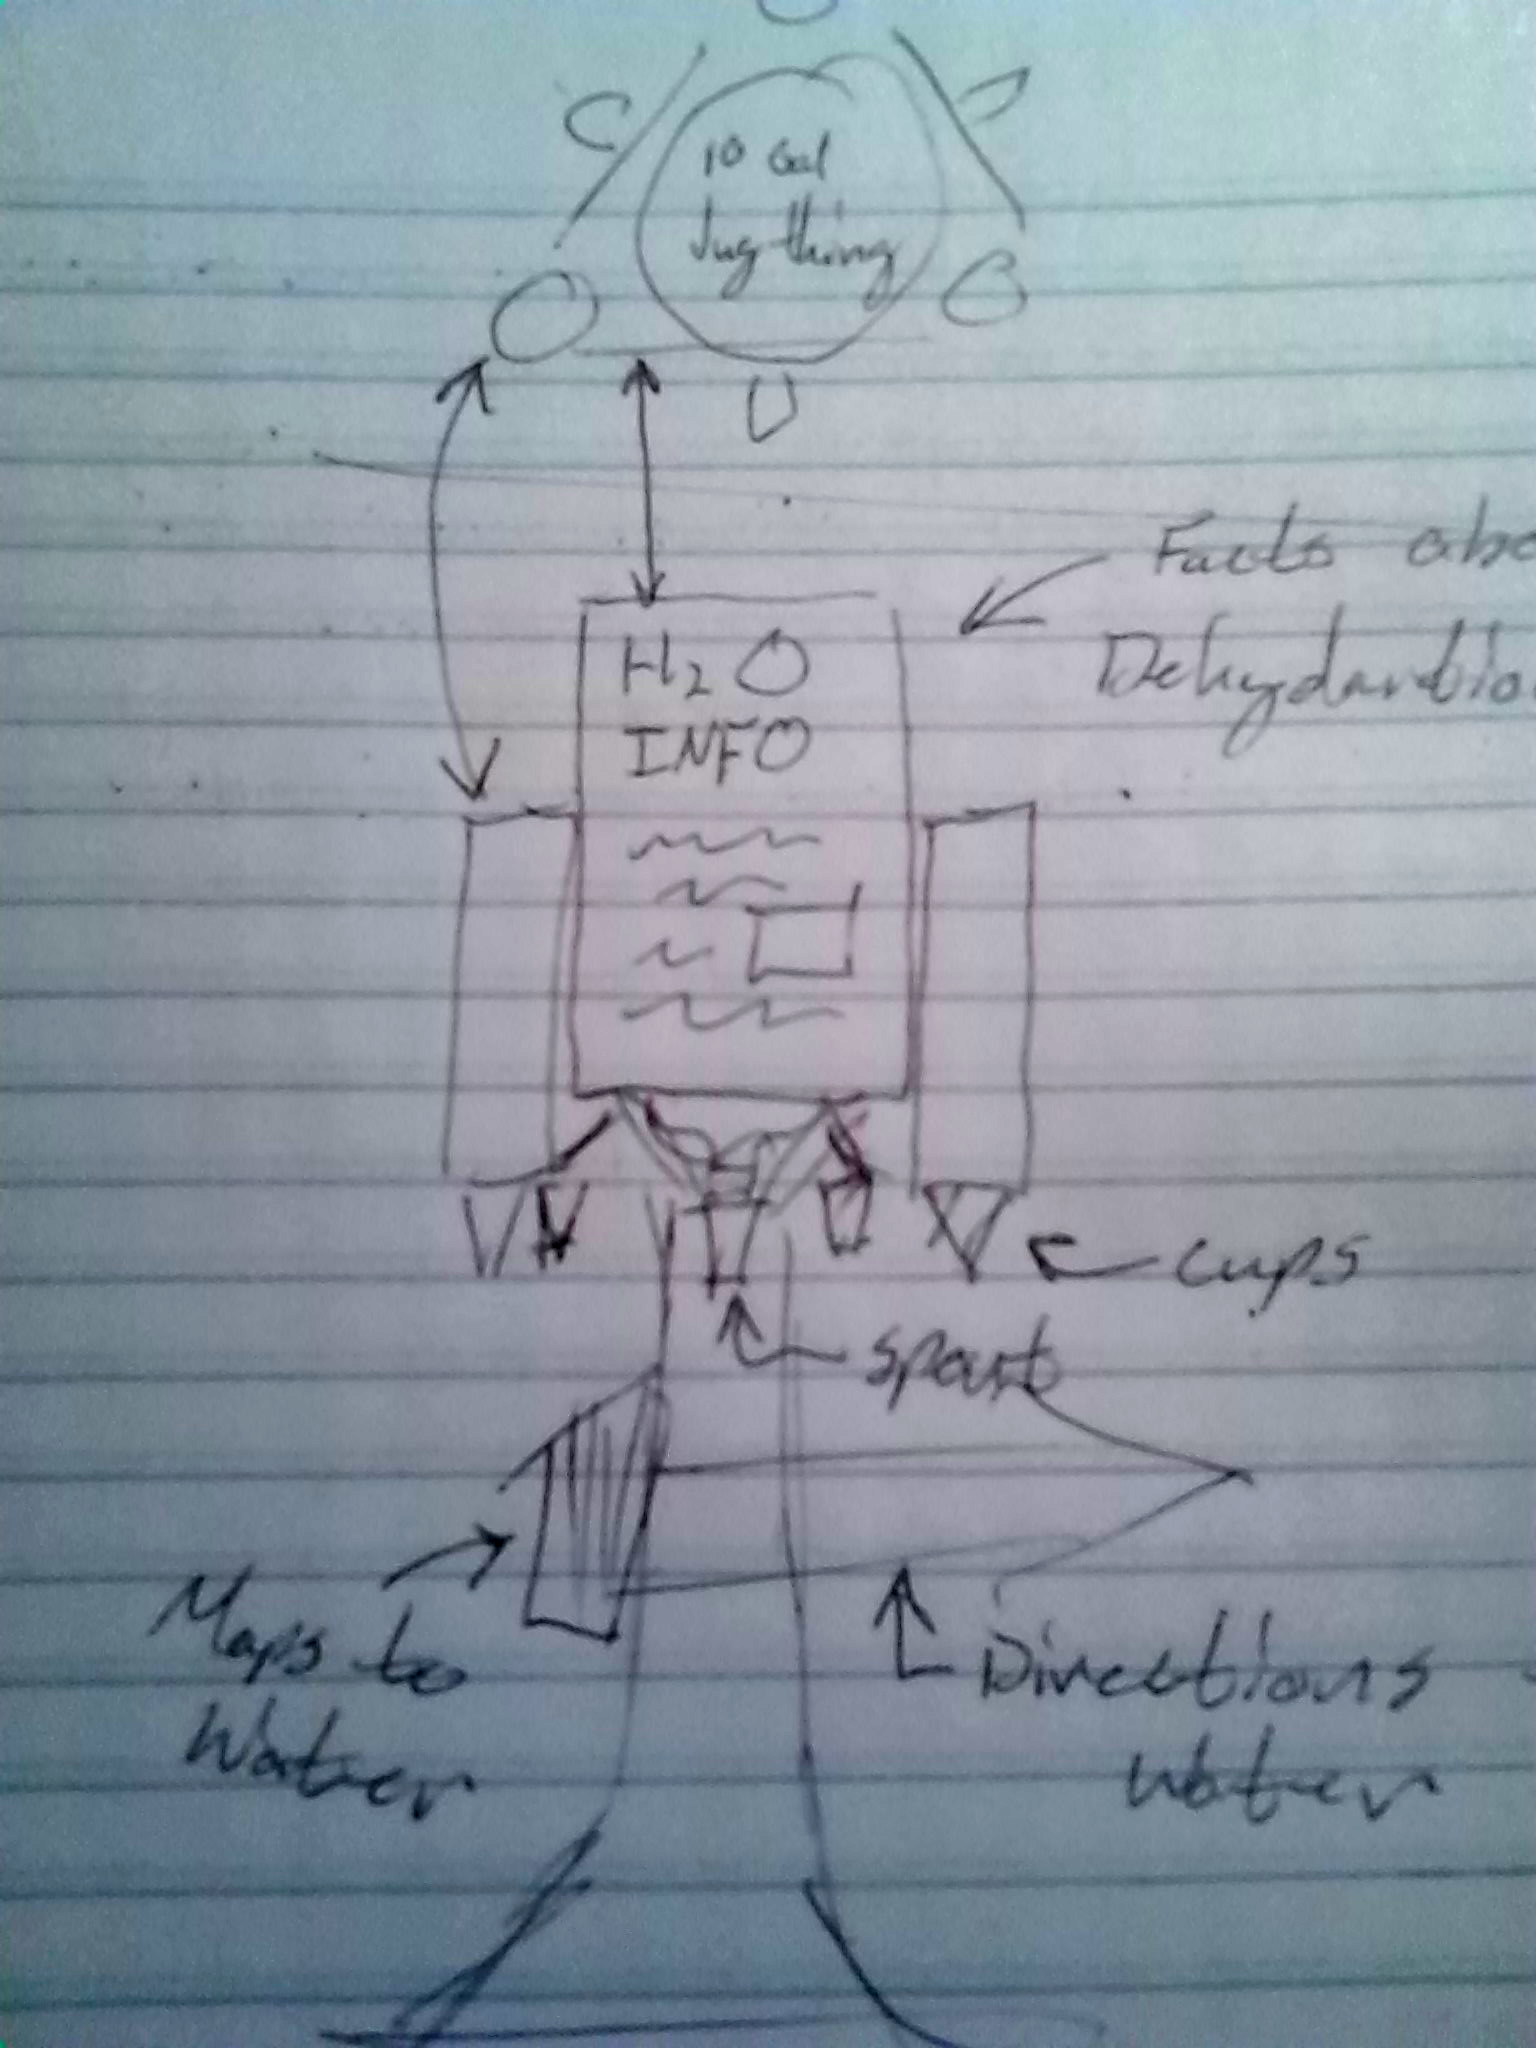 10 Gal
Jug thing
Facts abo
Dehydartio
H2O
INFO
cups
spout
Maps to
Water
Directions
Water